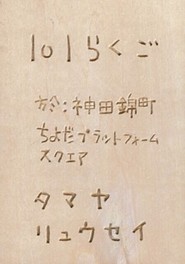 101らくご
於:神田錦町
ちよだプラットフォーム
スクエア
タマヤ
リュウセイ